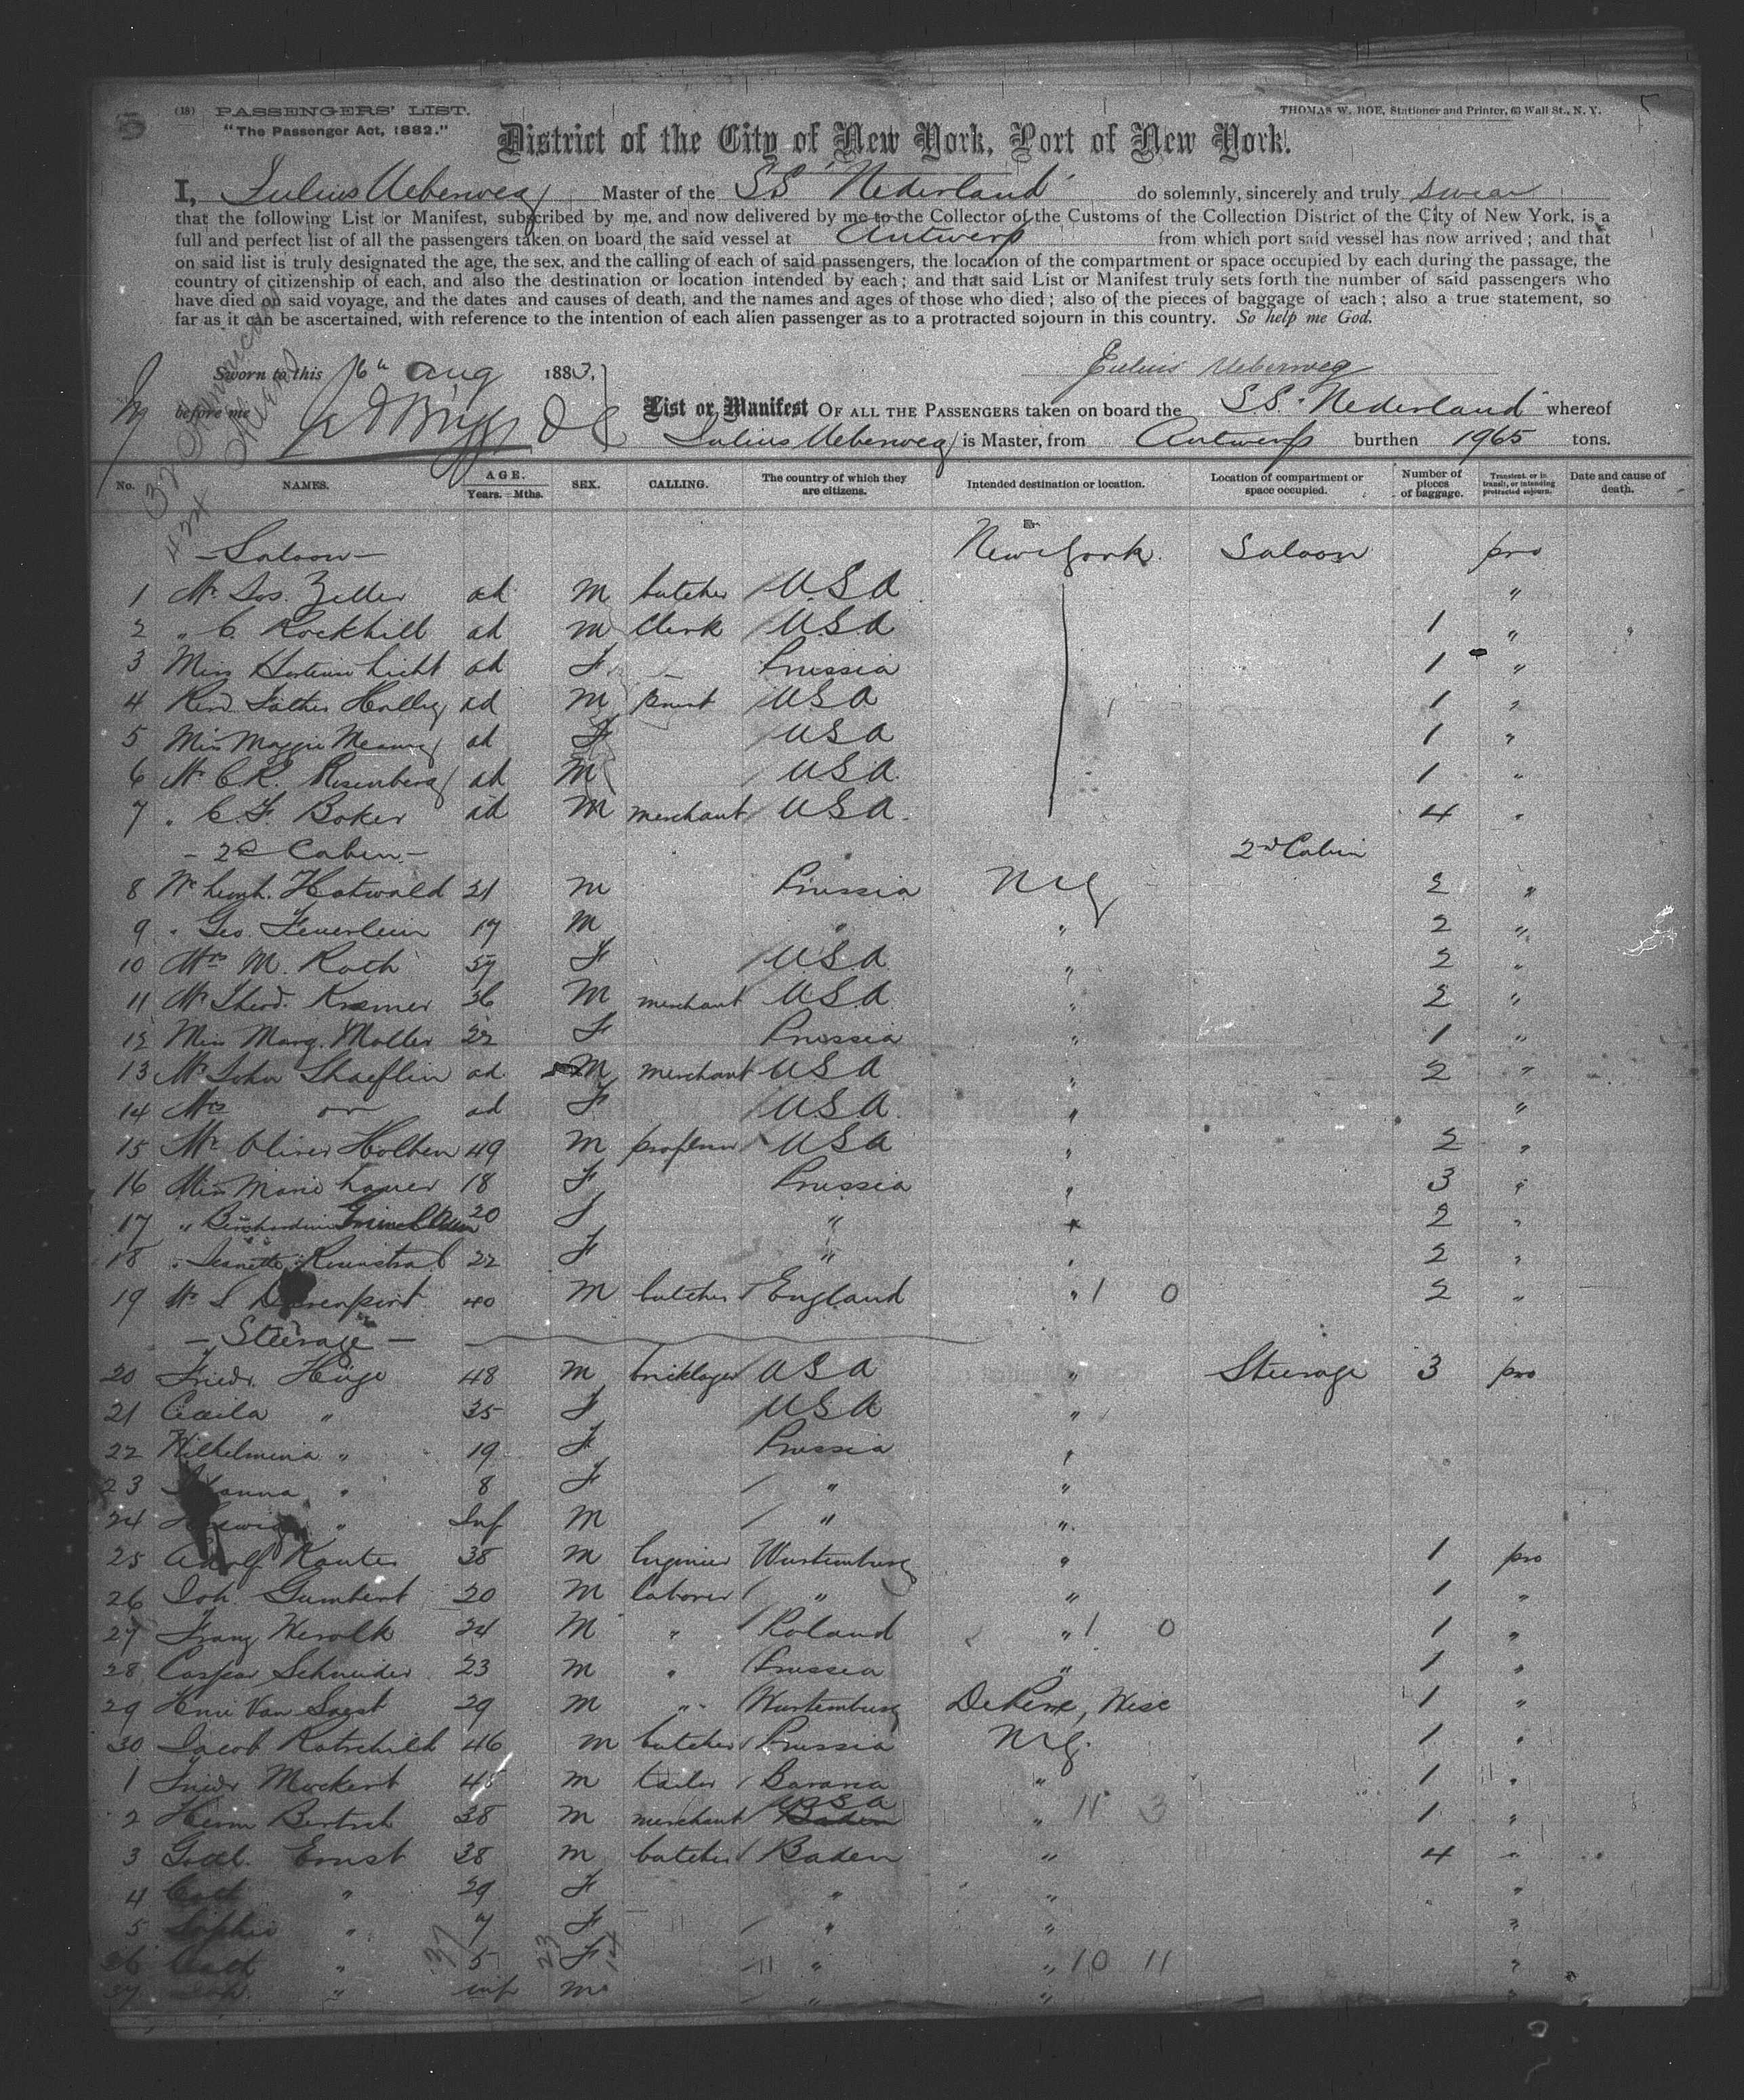 (18) PASSENGERS' LIST.
"The Passenger Act, 1882."
THOMAS W. ROE, Stationer and Printer, 63 Wall St., N. Y.
District of the City of New York, Port of New York.
I, Julius Ueberweg Master of the SS "Nederland" do solemnly, sincerely and truly swear
that the following List or Manifest, subscribed by me, and now delivered by me to the Collector of the Customs of the Collection District of the City of New York, is a
full and perfect list of all the passengers taken on board the said vessel at Antwerp from which port said vessel has now arrived; and that
on said list is truly designated the age, the sex, and the calling of each of said passengers, the location of the compartment or space occupied by each during the passage, the
country of citizenship of each, and also the destination or location intended by each; and that said List or Manifest truly sets forth the number of said passengers who
have died on said voyage, and the dates and causes of death, and the names and ages of those who died; also of the pieces of baggage of each; also a true statement, so
far as it can be ascertained, with reference to the intention of each alien passenger as to a protracted sojourn in this country. So help me God.
Sworn to this 16th Aug 1883,
Julius Ueberweg
before me
List or Manifest OF ALL THE PASSENGERS taken on board the SS. "Nederland" whereof
Julius Ueberweg is Master, from Antwerp burthen 1965 tons.
No. NAMES. AGE. Years. Mths. SEX. CALLING. The country of which they are citizens. Intended destination or location. Location of compartment or space occupied. Number of pieces of baggage. Transient, or in transit, or intending protracted sojourn. Date and cause of death.
- Saloon - New York. Saloon pro
1 Mr Jos. Zeller ad M butcher USA "
2 " C. Rockhill ad M Clerk USA 1 "
3 Miss Licht ad F Prussia 1 "
4 Revd Father ad M priest USA 1 "
5 Miss Maggie ad F USA 1 "
6 Mr C.R. Rosenberg ad M USA 1 "
7 " C. F. Boker ad M merchant USA. 4 "
- 2d Cabin - 2nd Cabin
8 Mr Hatwald 21 M Prussia NY 2 "
9 " Geo. Feuerlein 17 M " " 2 "
10 Mrs M. Roth 59 F USA " 2 "
11 Mr Theod. Kramer 36 M merchant USA " 2 "
12 Miss Marg. Moller 22 F Prussia " 1 "
13 Mr John Shaeflin ad M merchant USA " 2 "
14 Mrs ad F USA " "
15 Mr Oliver Holben 49 M professor USA " 2 "
16 Miss Marie Lauer 18 F Prussia " 3 "
17 " 20 F " " 2 "
18 " Jeanette 22 F " " 2 "
19 Mr S Davenport 40 M butcher England " 1 0 2 "
- Steerage -
20 Friedr. Hüge 48 M bricklayer USA " Steerage 3 pro
21 Cacila " 35 F USA "
22 Wilhelmina " 19 F Prussia "
23 " 8 F " "
24 " Inf M " "
25 Adolf Kauter 38 M Engineer Wurtemburg " 1 pro
26 Joh. Gumbert 20 M laborer " " 1 "
27 Franz 24 M " Poland " 1 0 1 "
28 Caspar Schneider 23 M " Prussia " 1 "
29 Van Soest 29 M " Wurtemburg DePere, Wisc 1 "
30 Jacob Rotschild 46 M butcher Prussia NY. 1 "
1 Friedr Mockert 45 M tailor Bavaria " 1 "
2 Herm Bertsch 38 M merchant USA Baden " 11 3 1 "
3 Gottl. Ernst 38 M butcher Baden " 4 "
4 Cath " 29 F " " "
5 Sophie " 7 F " " "
36 " 5 F " " 10 11 "
37 " inf M " " "